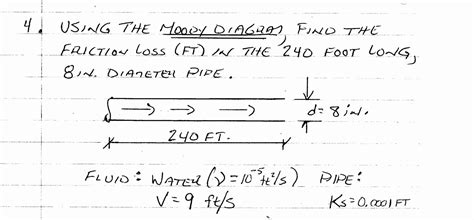 4. USING THE MOODY DIAGRAM, FIND THE
FRICTION LOSS (FT) IN THE 240 FOOT LONG,
8 IN. DIAMETER PIPE.
d = 8 in.
240 FT.
FLUID: WATER (ν = 10⁻⁵ ft²/s) PIPE:
V = 9 ft/s Ks = 0.0001 FT